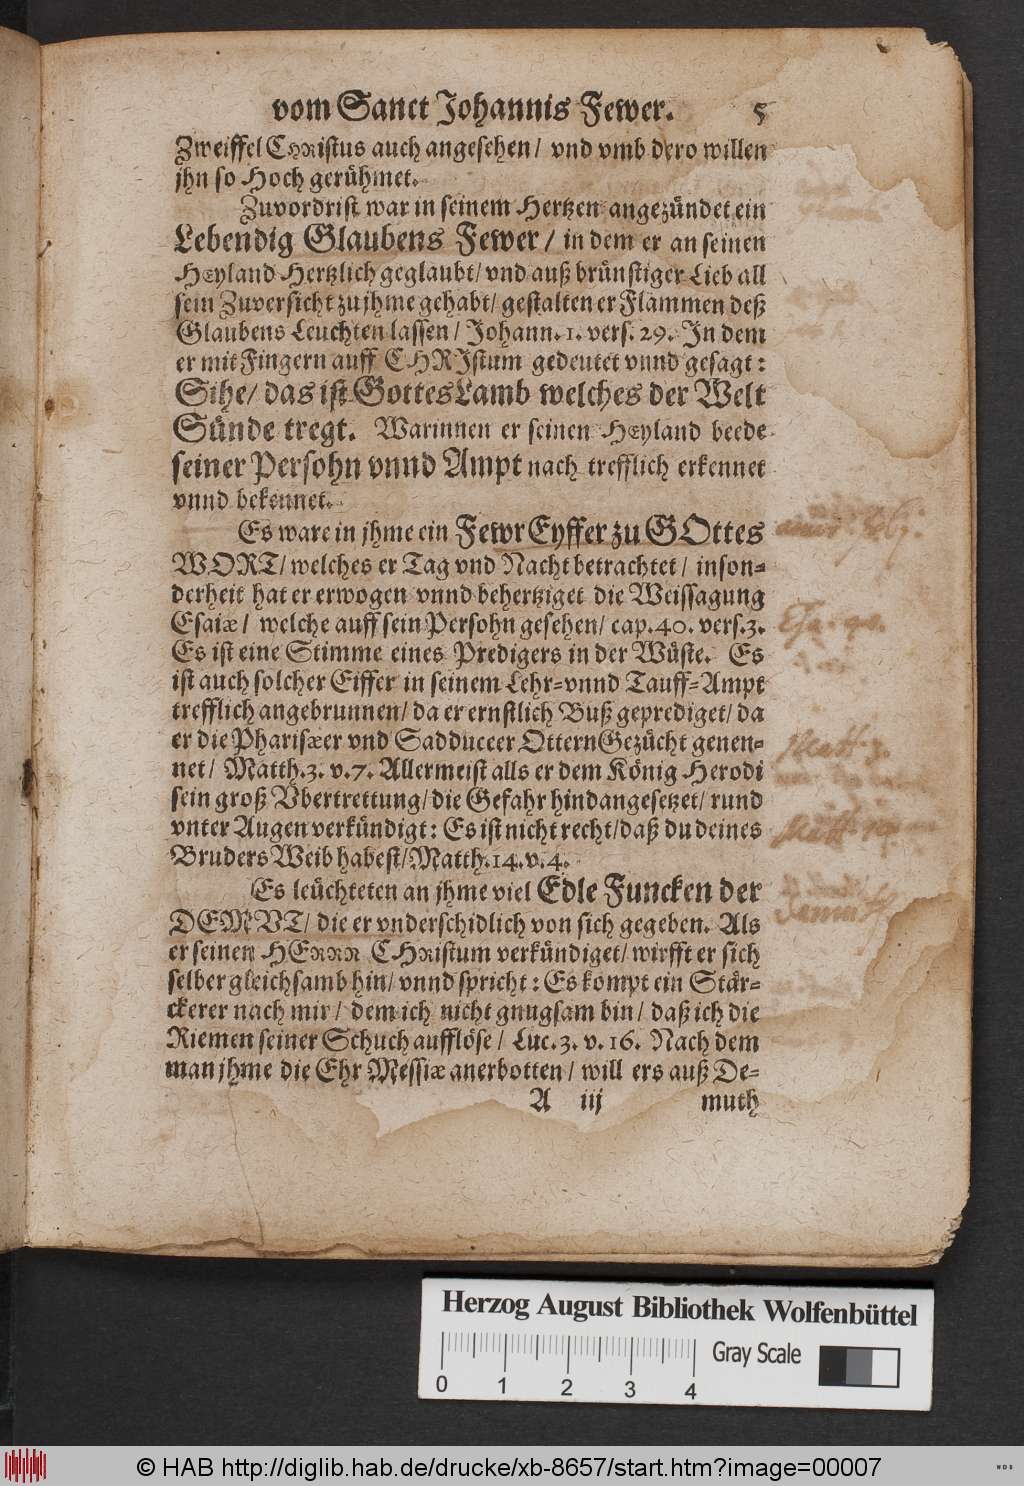 vom Sanct Johannis Fewer. 5
Zweiffel CHRistus auch angesehen / vnd vmb dero willen
jhn so Hoch gerühmet.
Zuvordrist war in seinem Hertzen angezündet ein
Lebendig Glaubens Fewer / in dem er an seinen
HEyland Hertzlich geglaubt / vnd auß brünstiger Lieb all
sein Zuversicht zu jhme gehabt / gestalten er Flammen deß
Glaubens Leuchten lassen / Johann. 1. vers. 29. In dem
er mit Fingern auff CHRIstum gedeutet vnnd gesagt :
Sihe / das ist Gottes Lamb welches der Welt
Sünde tregt. Warinnen er seinen HEyland beede
seiner Persohn vnnd Ampt nach trefflich erkennet
vnnd bekennet.
Es ware in jhme ein Fewr Eyffer zu GOttes
WORT / welches er Tag vnd Nacht betrachtet / inson=
derheit hat er erwogen vnnd behertziget die Weissagung
Esaiæ / welche auff sein Persohn gesehen / cap. 40. vers. 3.
Es ist eine Stimme eines Predigers in der Wüste. Es
ist auch solcher Eiffer in seinem Lehr= vnnd Tauff=Ampt
trefflich angebrunnen / da er ernstlich Buß geprediget / da
er die Pharisæer vnd Sadduceer OtternGezücht genen=
net / Matth. 3. v. 7. Allermeist alls er dem König Herodi
sein groß Vbertrettung / die Gefahr hindangesetzet / rund
vnter Augen verkündigt : Es ist nicht recht / daß du deines
Bruders Weib habest / Matth. 14. v. 4.
Es leüchteten an jhme viel Edle Funcken der
DEMVT / die er vnderschidlich von sich gegeben. Als
er seinen HERRN CHRistum verkündiget / wirfft er sich
selber gleichsamb hin / vnnd spricht : Es kompt ein Stär=
ckerer nach mir / dem ich nicht gnugsam bin / daß ich die
Riemen seiner Schuch aufflöse / Luc. 3. v. 16. Nach dem
man jhme die Ehr Messiæ anerbotten / will ers auß De=
A iij muth
Esa. 40.
Matth. 3.
Herzog August Bibliothek Wolfenbüttel
Gray Scale
0 1 2 3 4
© HAB http://diglib.hab.de/drucke/xb-8657/start.htm?image=00007